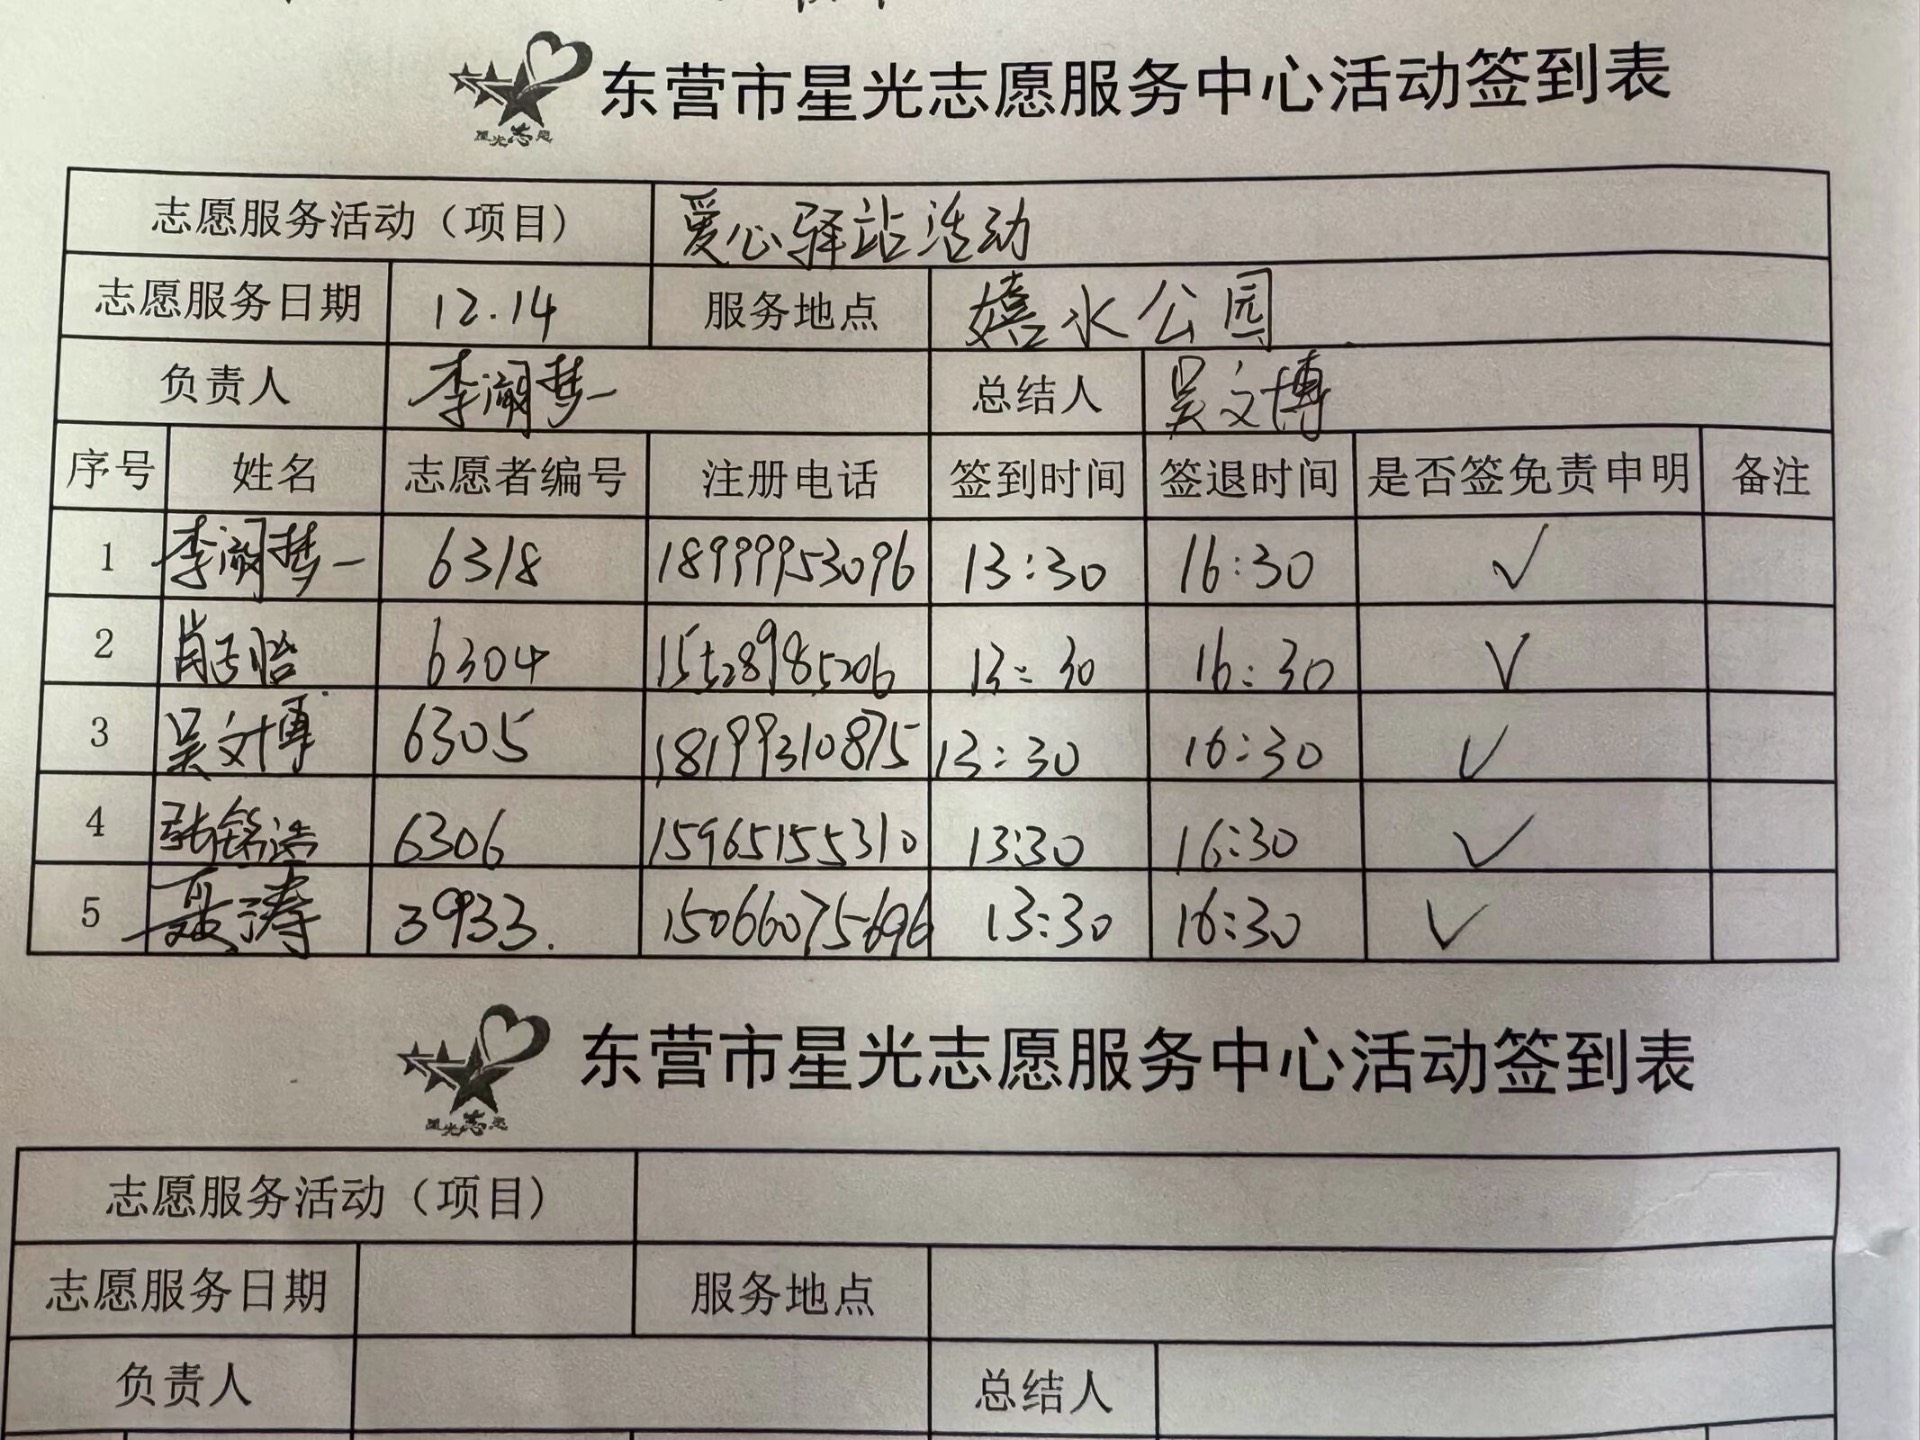 东营市星光志愿服务中心活动签到表
星光志愿
志愿服务活动（项目） 爱心驿站活动
志愿服务日期 12.14 服务地点 嬉水公园
负责人 李梦一 总结人 吴文博
序号 姓名 志愿者编号 注册电话 签到时间 签退时间 是否签免责申明 备注
1 李梦一 6318 18999953096 13:30 16:30 √
2 肖 怡 6304 15528985206 13:30 16:30 √
3 吴文博 6305 18199310875 13:30 16:30 √
4 张铭浩 6306 15965155310 13:30 16:30 √
5 聂涛 3933. 15066075696 13:30 16:30 √
东营市星光志愿服务中心活动签到表
星光志愿
志愿服务活动（项目）
志愿服务日期 服务地点
负责人 总结人